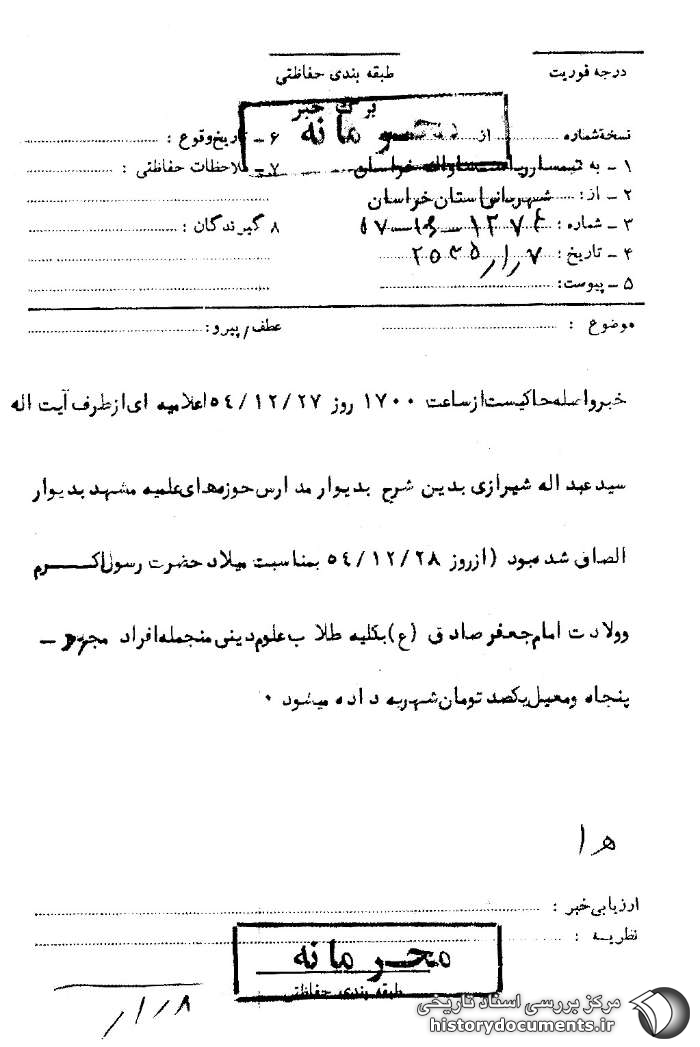 درجه فوریت
طبقه بندی حفاظتی
برگ خبر
محرمانه
نسخه شماره از
۱ ـ به تیمسار ریاست ساواک خراسان
۲ ـ از: شهربانی استان خراسان
۳ ـ شماره :
۴ ـ تاریخ : ۲۵۳۵/۱/۷
۵ ـ پیوست:
۶ ـ تاریخ وقوع :
۷ ـ ملاحظات حفاظتی :
۸ گیرندگان :
موضوع :
عطف/پیرو:
خبر واصله حاکیست از ساعت ۱۷۰۰ روز ۵۴/۱۲/۲۷ اعلامیه ای از طرف آیت اله
سید عبد اله شیرازی بدین شرح بدیوار مدارس حوزه های علمیه مشهد بدیوار
الصاق شده بود (از روز ۵۴/۱۲/۲۸ بمناسبت میلاد حضرت رسول اکرم
و ولادت امام جعفر صادق (ع) بکلیه طلاب علوم دینی منجمله افراد مجرد ـ
پنجاه و معیل یکصد تومان شهریه داده میشود ۰
ه ا
ارزیابی خبر :
نظریه :
محرمانه
طبقه بندی حفاظتی
۸/۱/
مرکز بررسی اسناد تاریخی
historydocuments.ir